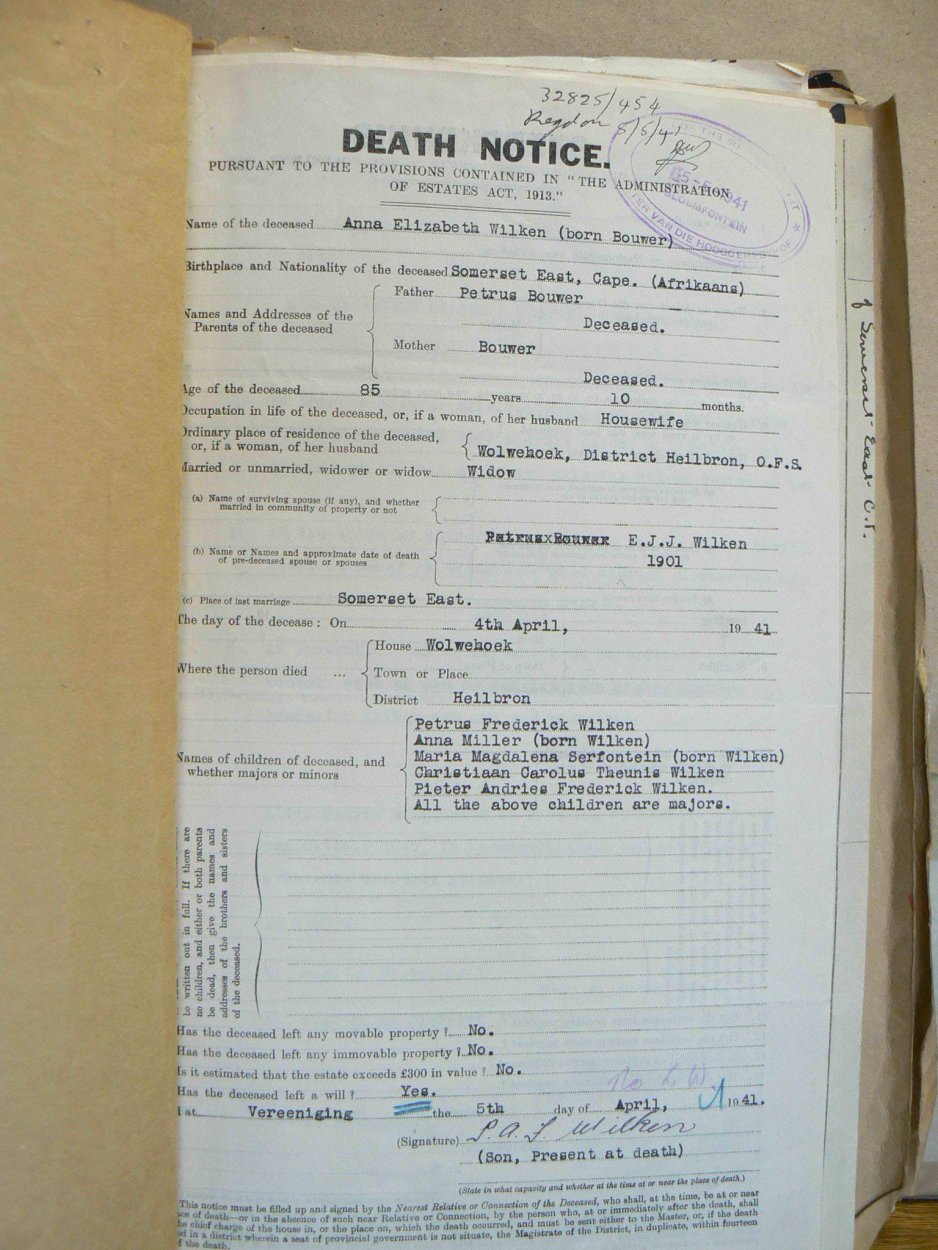 32825/454
Regd on 5/5/41
DEATH NOTICE.
PURSUANT TO THE PROVISIONS CONTAINED IN "THE ADMINISTRATION
OF ESTATES ACT, 1913."
5-5-1941
BLOEMFONTEIN
VAN DIE HOOGGEREGSHOF
Name of the deceased Anna Elizabeth Wilken (born Bouwer)
Birthplace and Nationality of the deceased Somerset East, Cape. (Afrikaans)
Names and Addresses of the
Parents of the deceased
Father Petrus Bouwer
Deceased.
Mother Bouwer
Deceased.
Age of the deceased 85 years 10 months.
Occupation in life of the deceased, or, if a woman, of her husband Housewife
Ordinary place of residence of the deceased,
or, if a woman, of her husband
Wolwehoek, District Heilbron, O.F.S.
Married or unmarried, widower or widow Widow
(a) Name of surviving spouse (if any), and whether
married in community of property or not
(b) Name or Names and approximate date of death
of pre-deceased spouse or spouses
Petrus Bouwer E.J.J. Wilken
1901
(c) Place of last marriage Somerset East.
The day of the decease: On 4th April, 19 41
Where the person died ...
House Wolwehoek
Town or Place
District Heilbron
Names of children of deceased, and
whether majors or minors
Petrus Frederick Wilken
Anna Miller (born Wilken)
Maria Magdalena Serfontein (born Wilken)
Christiaan Carolus Theunis Wilken
Pieter Andries Frederick Wilken.
All the above children are majors.
be written out in full. If there are
no children, and either or both parents
be dead, then give the names and
addresses of the brothers and sisters
of the deceased.
Has the deceased left any movable property? No.
Has the deceased left any immovable property? No.
Is it estimated that the estate exceeds £300 in value? No.
Has the deceased left a will? Yes.
at Vereeniging the 5th day of April, 1941.
(Signature) P.A.F. Wilken
(Son, Present at death)
(State in what capacity and whether at the time at or near the place of death.)
This notice must be filled up and signed by the Nearest Relative or Connection of the Deceased, who shall, at the time, be at or near
ace of death—or in the absence of such near Relative or Connection, by the person who, at or immediately after the death, shall
he chief charge of the house in, or the place on, which the death occurred, and must be sent either to the Master, or, if the death
ed in a district wherein a seat of provincial government is not situate, the Magistrate of the District, in duplicate, within fourteen
f the death.
of Somerset East C.P.